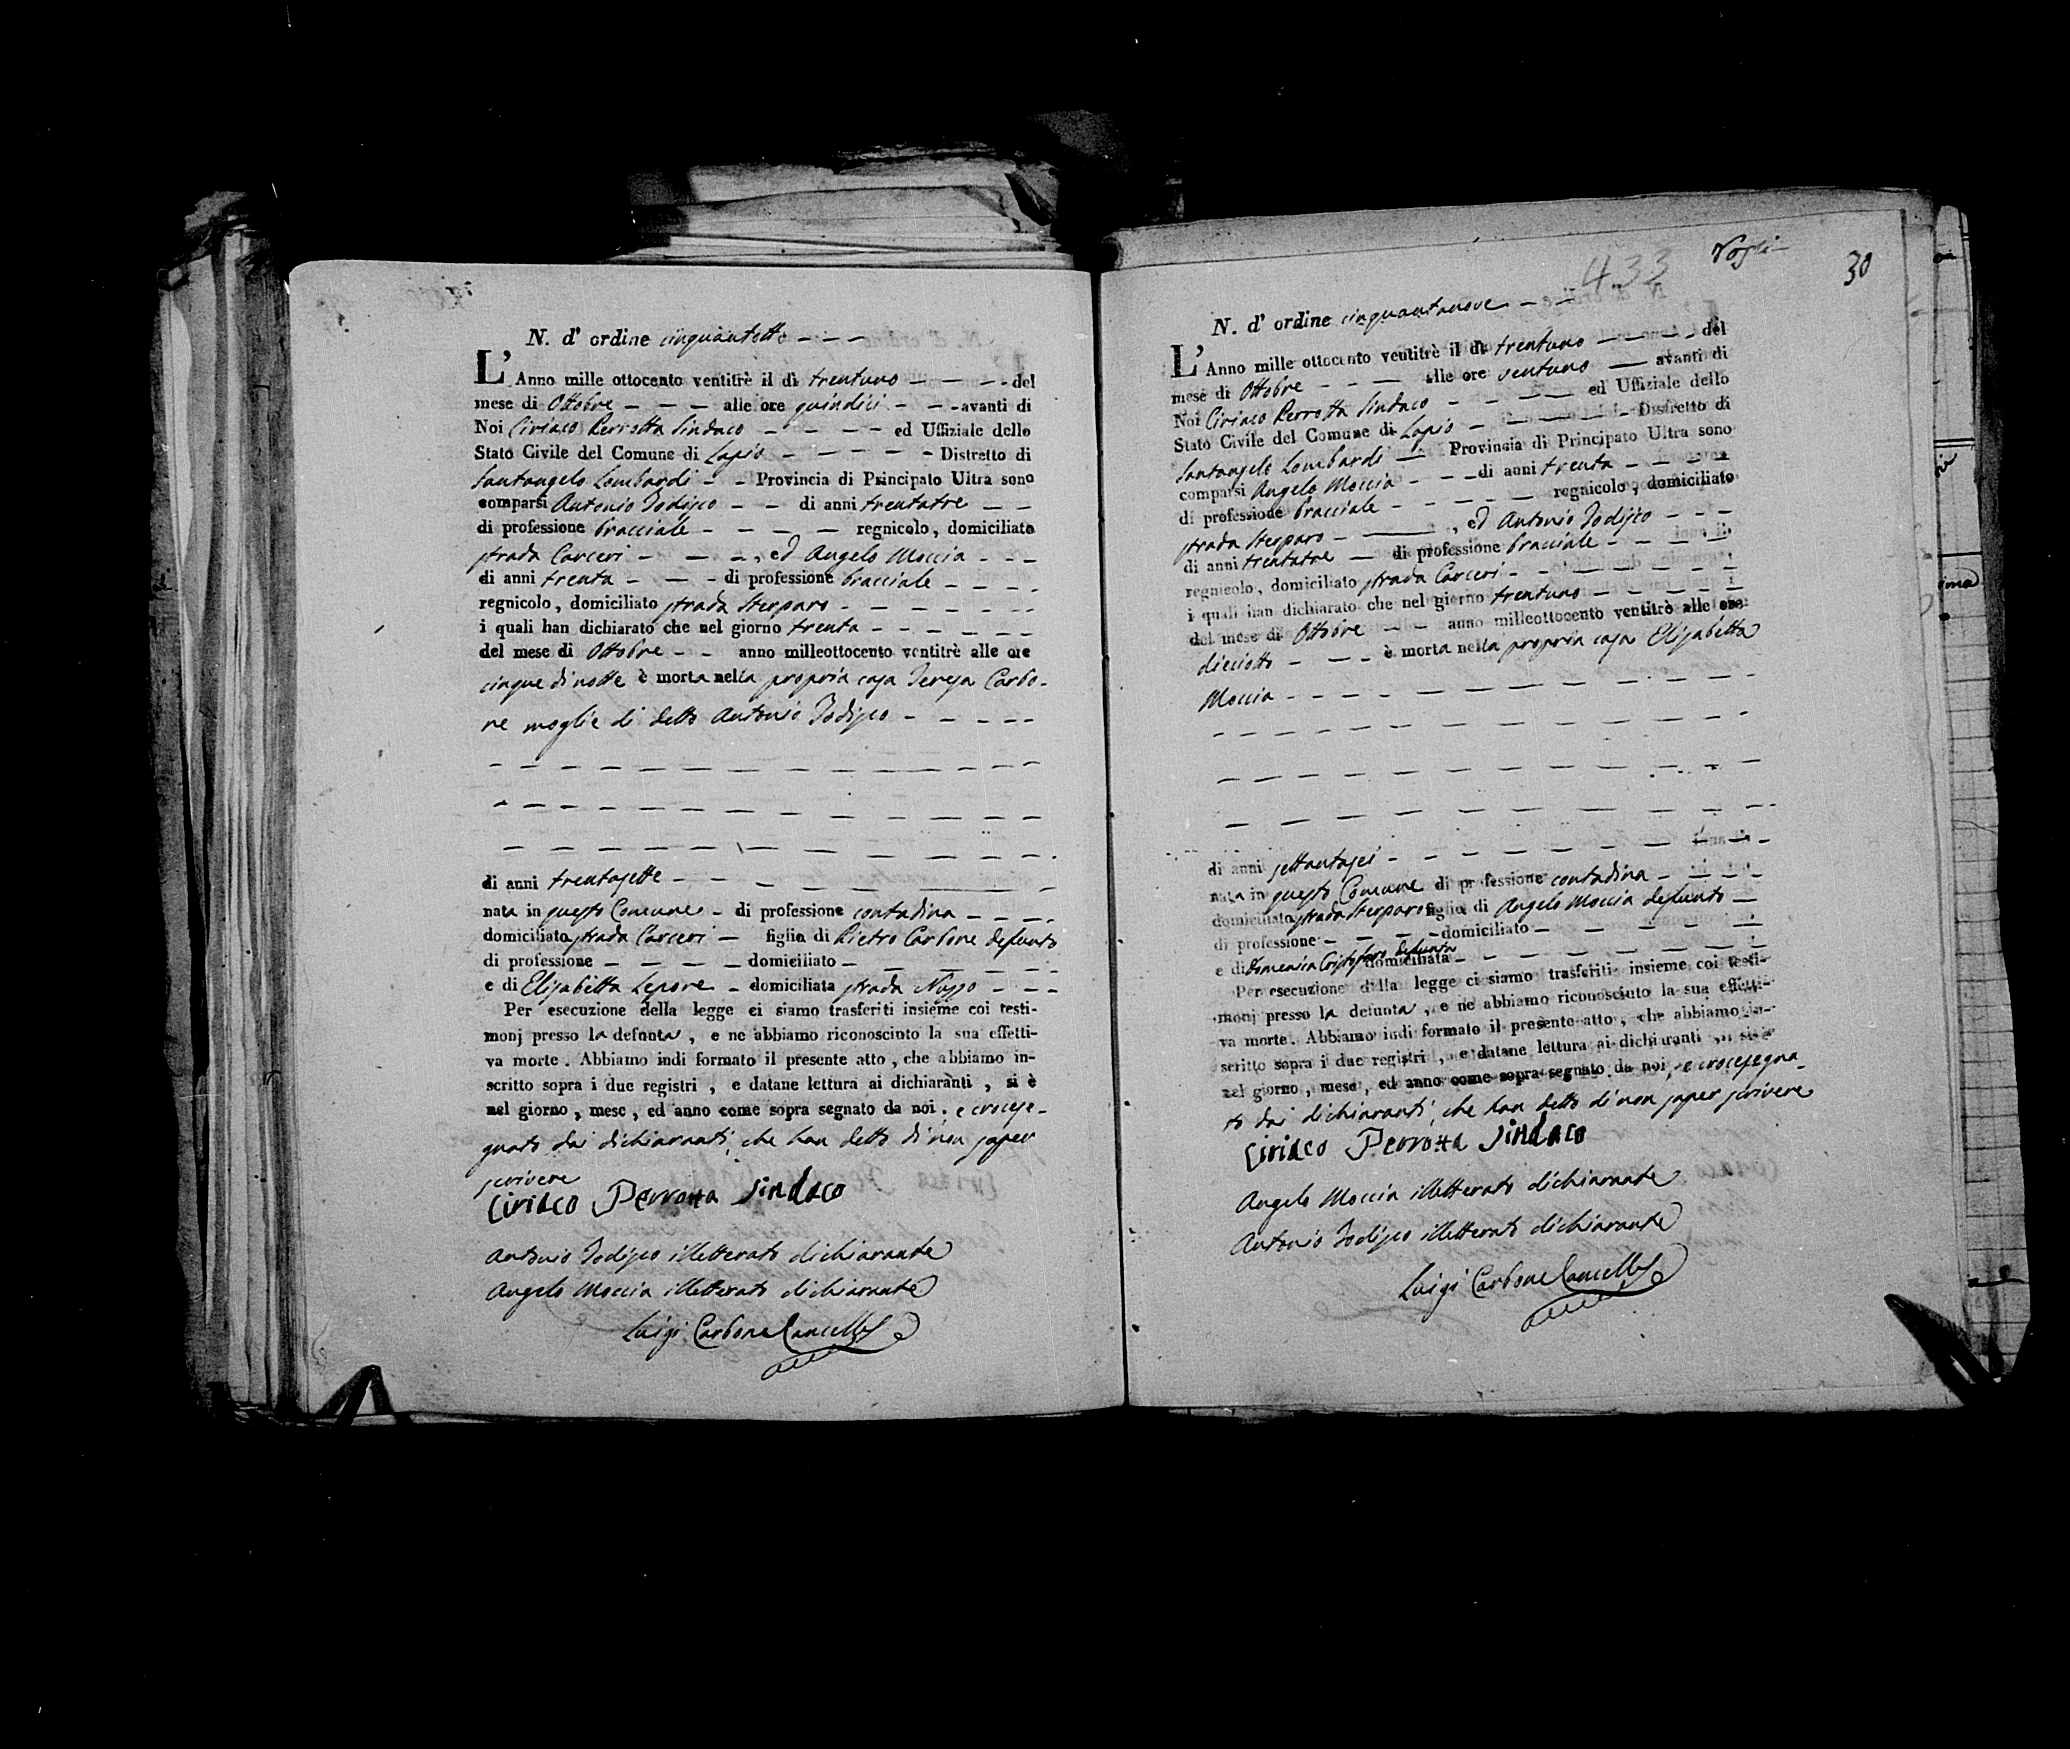 N. d' ordine cinquantotto
L' Anno mille ottocento ventitrè il dì trentuno del
mese di Ottobre alle ore quindici avanti di
Noi Ciriaco Perrotta Sindaco ed Uffiziale dello
Stato Civile del Comune di Lapio Distretto di
Santangelo Lombardi Provincia di Principato Ultra sono
comparsi Antonio Todisco di anni trentatre
di professione bracciale regnicolo, domiciliato
strada Carceri, ed Angelo Moccia
di anni trenta di professione bracciale
regnicolo, domiciliato strada Sterparo
i quali han dichiarato che nel giorno trenta
del mese di Ottobre anno milleottocento ventitrè alle ore
cinque di notte è morta nella propria casa Teresa Carbo-
ne moglie di detto Antonio Todisco
di anni trentasette
nata in questo Comune di professione contadina
domiciliato strada Carceri figlia di Pietro Carbone defunto
di professione domiciliato
e di Elisabetta Lepore domiciliata strada
Per esecuzione della legge ci siamo trasferiti insieme coi testi-
monj presso la defunta, e ne abbiamo riconosciuto la sua effetti-
va morte. Abbiamo indi formato il presente atto, che abbiamo in-
scritto sopra i due registri, e datane lettura ai dichiaranti, si è
nel giorno, mese, ed anno come sopra segnato da noi. e crocese-
gnato dai dichiaranti, che han detto di non saper
scrivere
Ciriaco Perrotta Sindaco
Antonio Todisco illetterato dichiarante
Angelo Moccia illetterato dichiarante
Luigi Carbone Cancell
433
30
N. d' ordine cinquantanove
L' Anno mille ottocento ventitrè il dì trentuno del
mese di Ottobre alle ore ventuno avanti di
Noi Ciriaco Perrotta Sindaco ed Uffiziale dello
Stato Civile del Comune di Lapio Distretto di
Santangelo Lombardi Provincia di Principato Ultra sono
comparsi Angelo Moccia di anni trenta
di professione bracciale regnicolo, domiciliato
strada Sterparo, ed Antonio Todisco
di anni trentatre di professione bracciale
regnicolo, domiciliato strada Carceri
i quali han dichiarato che nel giorno trentuno
del mese di Ottobre anno milleottocento ventitrè alle ore
dieciotto è morta nella propria casa Elisabetta
Moccia
di anni settantasei
nata in questo Comune di professione contadina
domiciliato strada Sterparo figlia di Angelo Moccia defunto
di professione domiciliato
e di Domenica Cristofaro defunta domiciliata
Per esecuzione della legge ci siamo trasferiti insieme coi testi-
monj presso la defunta, e ne abbiamo riconosciuto la sua effetti-
va morte. Abbiamo indi formato il presente atto, che abbiamo in-
scritto sopra i due registri, e datane lettura ai dichiaranti, si è
nel giorno, mese, ed anno come sopra segnato da noi, e crocesegna-
to dai dichiaranti, che han detto di non saper scrivere
Ciriaco Perrotta Sindaco
Angelo Moccia illetterato dichiarante
Antonio Todisco illetterato dichiarante
Luigi Carbone Cancell